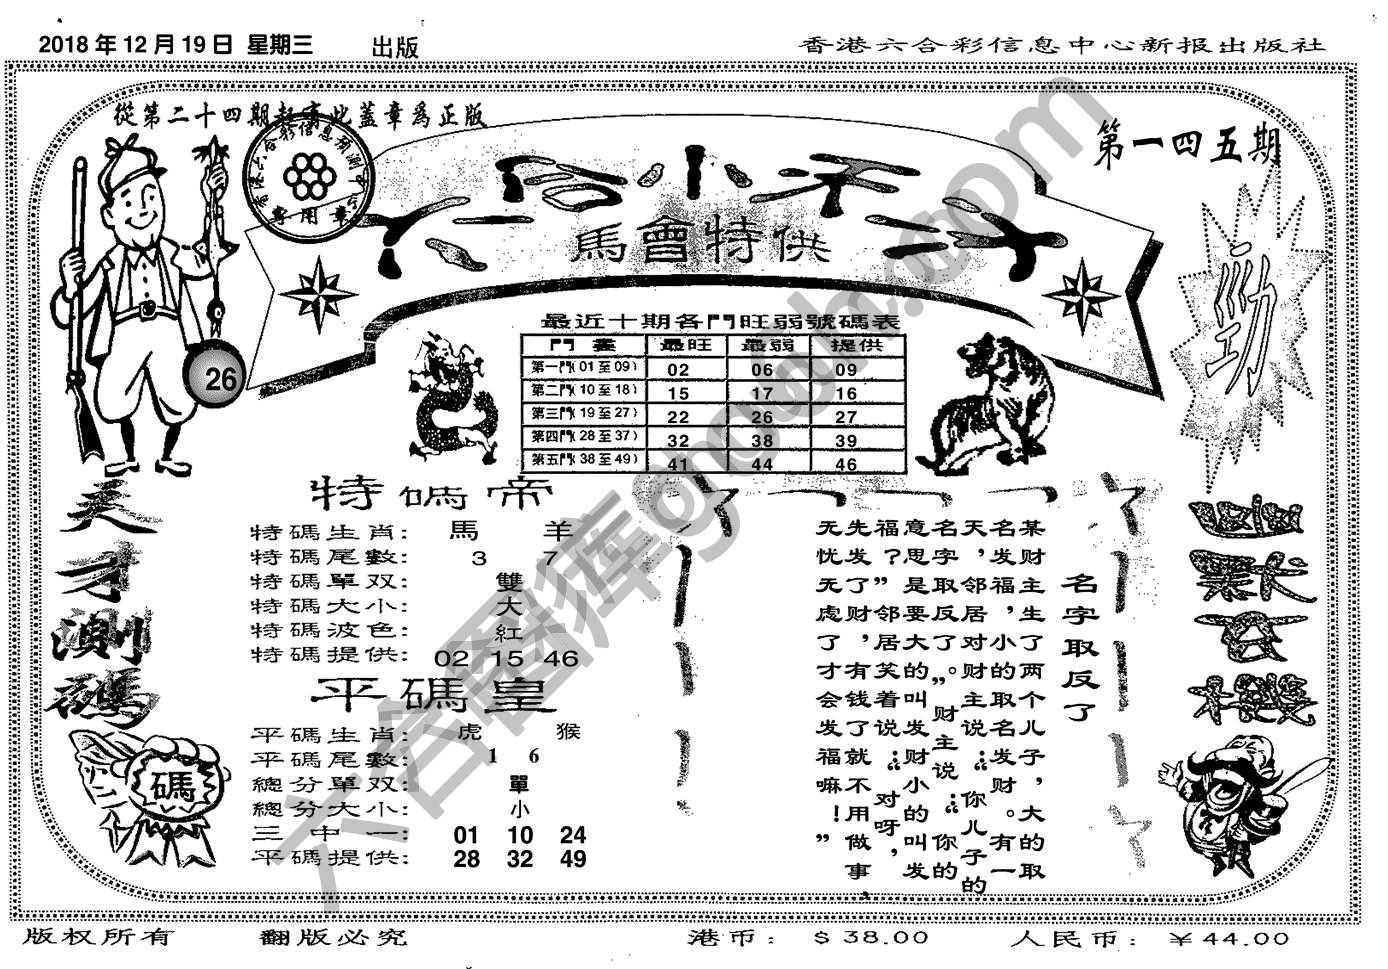 2018年12月19日 星期三 出版
香港六合彩信息中心新报出版社
從第二十四期起寄此蓋章爲正版
專用章
第一四五期
馬會特供
勁
26
最近十期各門旺弱號碼表
門 最旺 最弱 提供
第一門(01至09) 02 06 09
第二門(10至18) 15 17 16
第三門(19至27) 22 26 27
第四門(28至37) 32 38 39
第五門(38至49) 41 44 46
天才測碼
碼
特碼帝
特碼生肖: 馬 羊
特碼尾數: 3 7
特碼單双: 雙
特碼大小: 大
特碼波色: 紅
特碼提供: 02 15 46
平碼皇
平碼生肖: 虎 猴
平碼尾數: 1 6
總分單双: 單
總分大小: 小
三中一: 01 10 24
平碼提供: 28 32 49
名字取反了
某财主生了两个儿子,大的取
名发福,小的取名发财。有一
天,邻居对财主说:“你儿子的
名字取反了。”财主说:“你的
意思是要大的叫发财小的叫发
福?”邻居笑着说:“对呀,
先发了财,有钱了就不用做事,
无忧无虑了才会发福嘛!”
六合图库
版权所有 翻版必究 港币: $38.00 人民币: ￥44.00